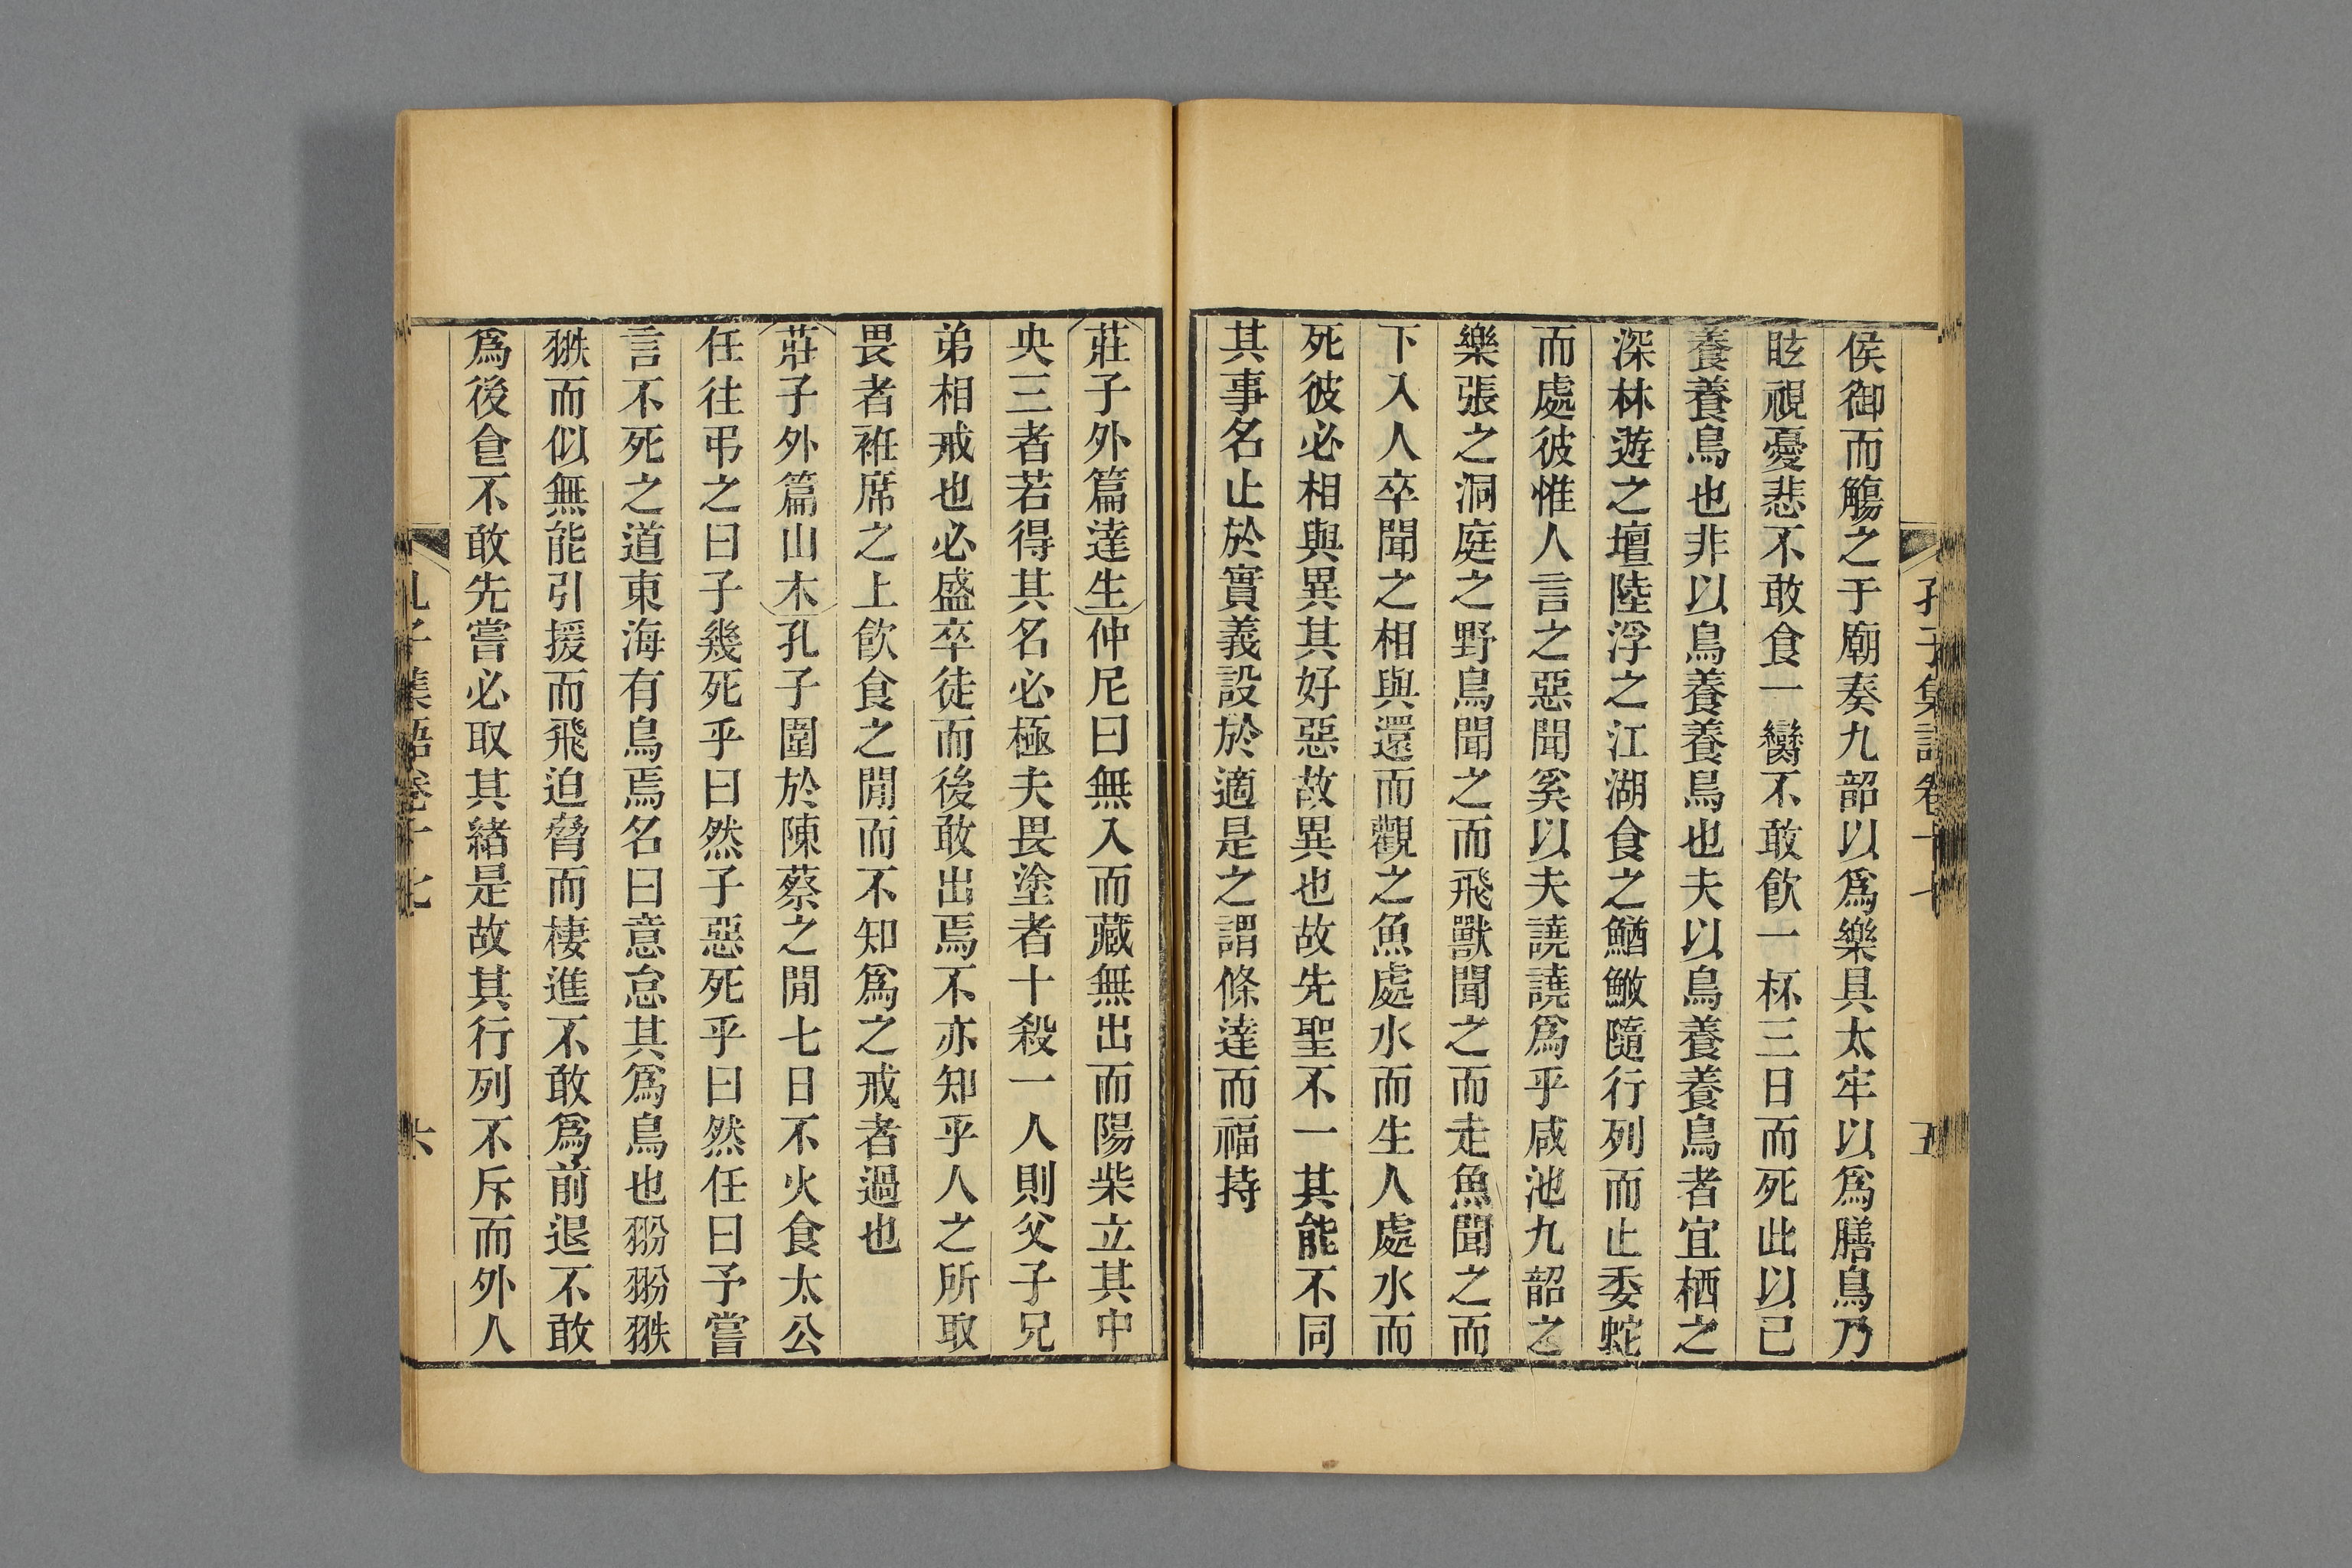 侯御而觴之于廟奏九韶以爲樂具太牢以爲膳鳥乃
眩視憂悲不敢食一臠不敢飲一杯三日而死此以已
養養鳥也非以鳥養養鳥也夫以鳥養養鳥者宜栖之
深林遊之壇陸浮之江湖食之鰌鮍隨行列而止委蛇
而處彼惟人言之惡聞奚以夫譊譊爲乎咸池九韶之
樂張之洞庭之野鳥聞之而飛獸聞之而走魚聞之而
下入人卒聞之相與還而觀之魚處水而生人處水而
死彼必相與異其好惡故異也故先聖不一其能不同
其事名止於實義設於適是之謂條達而福持
莊子外篇達生仲尼曰無入而藏無出而陽柴立其中
央三者若得其名必極夫畏塗者十殺一人則父子兄
弟相戒也必盛卒徒而後敢出焉不亦知乎人之所取
畏者袵席之上飲食之閒而不知爲之戒者過也
莊子外篇山木孔子圍於陳蔡之閒七日不火食太公
任往弔之曰子幾死乎曰然子惡死乎曰然任曰予嘗
言不死之道東海有鳥焉名曰意怠其爲鳥也翂翂翐
翐而似無能引援而飛迫脅而棲進不敢爲前退不敢
爲後食不敢先嘗必取其緒是故其行列不斥而外人
孔子集語卷十七
六